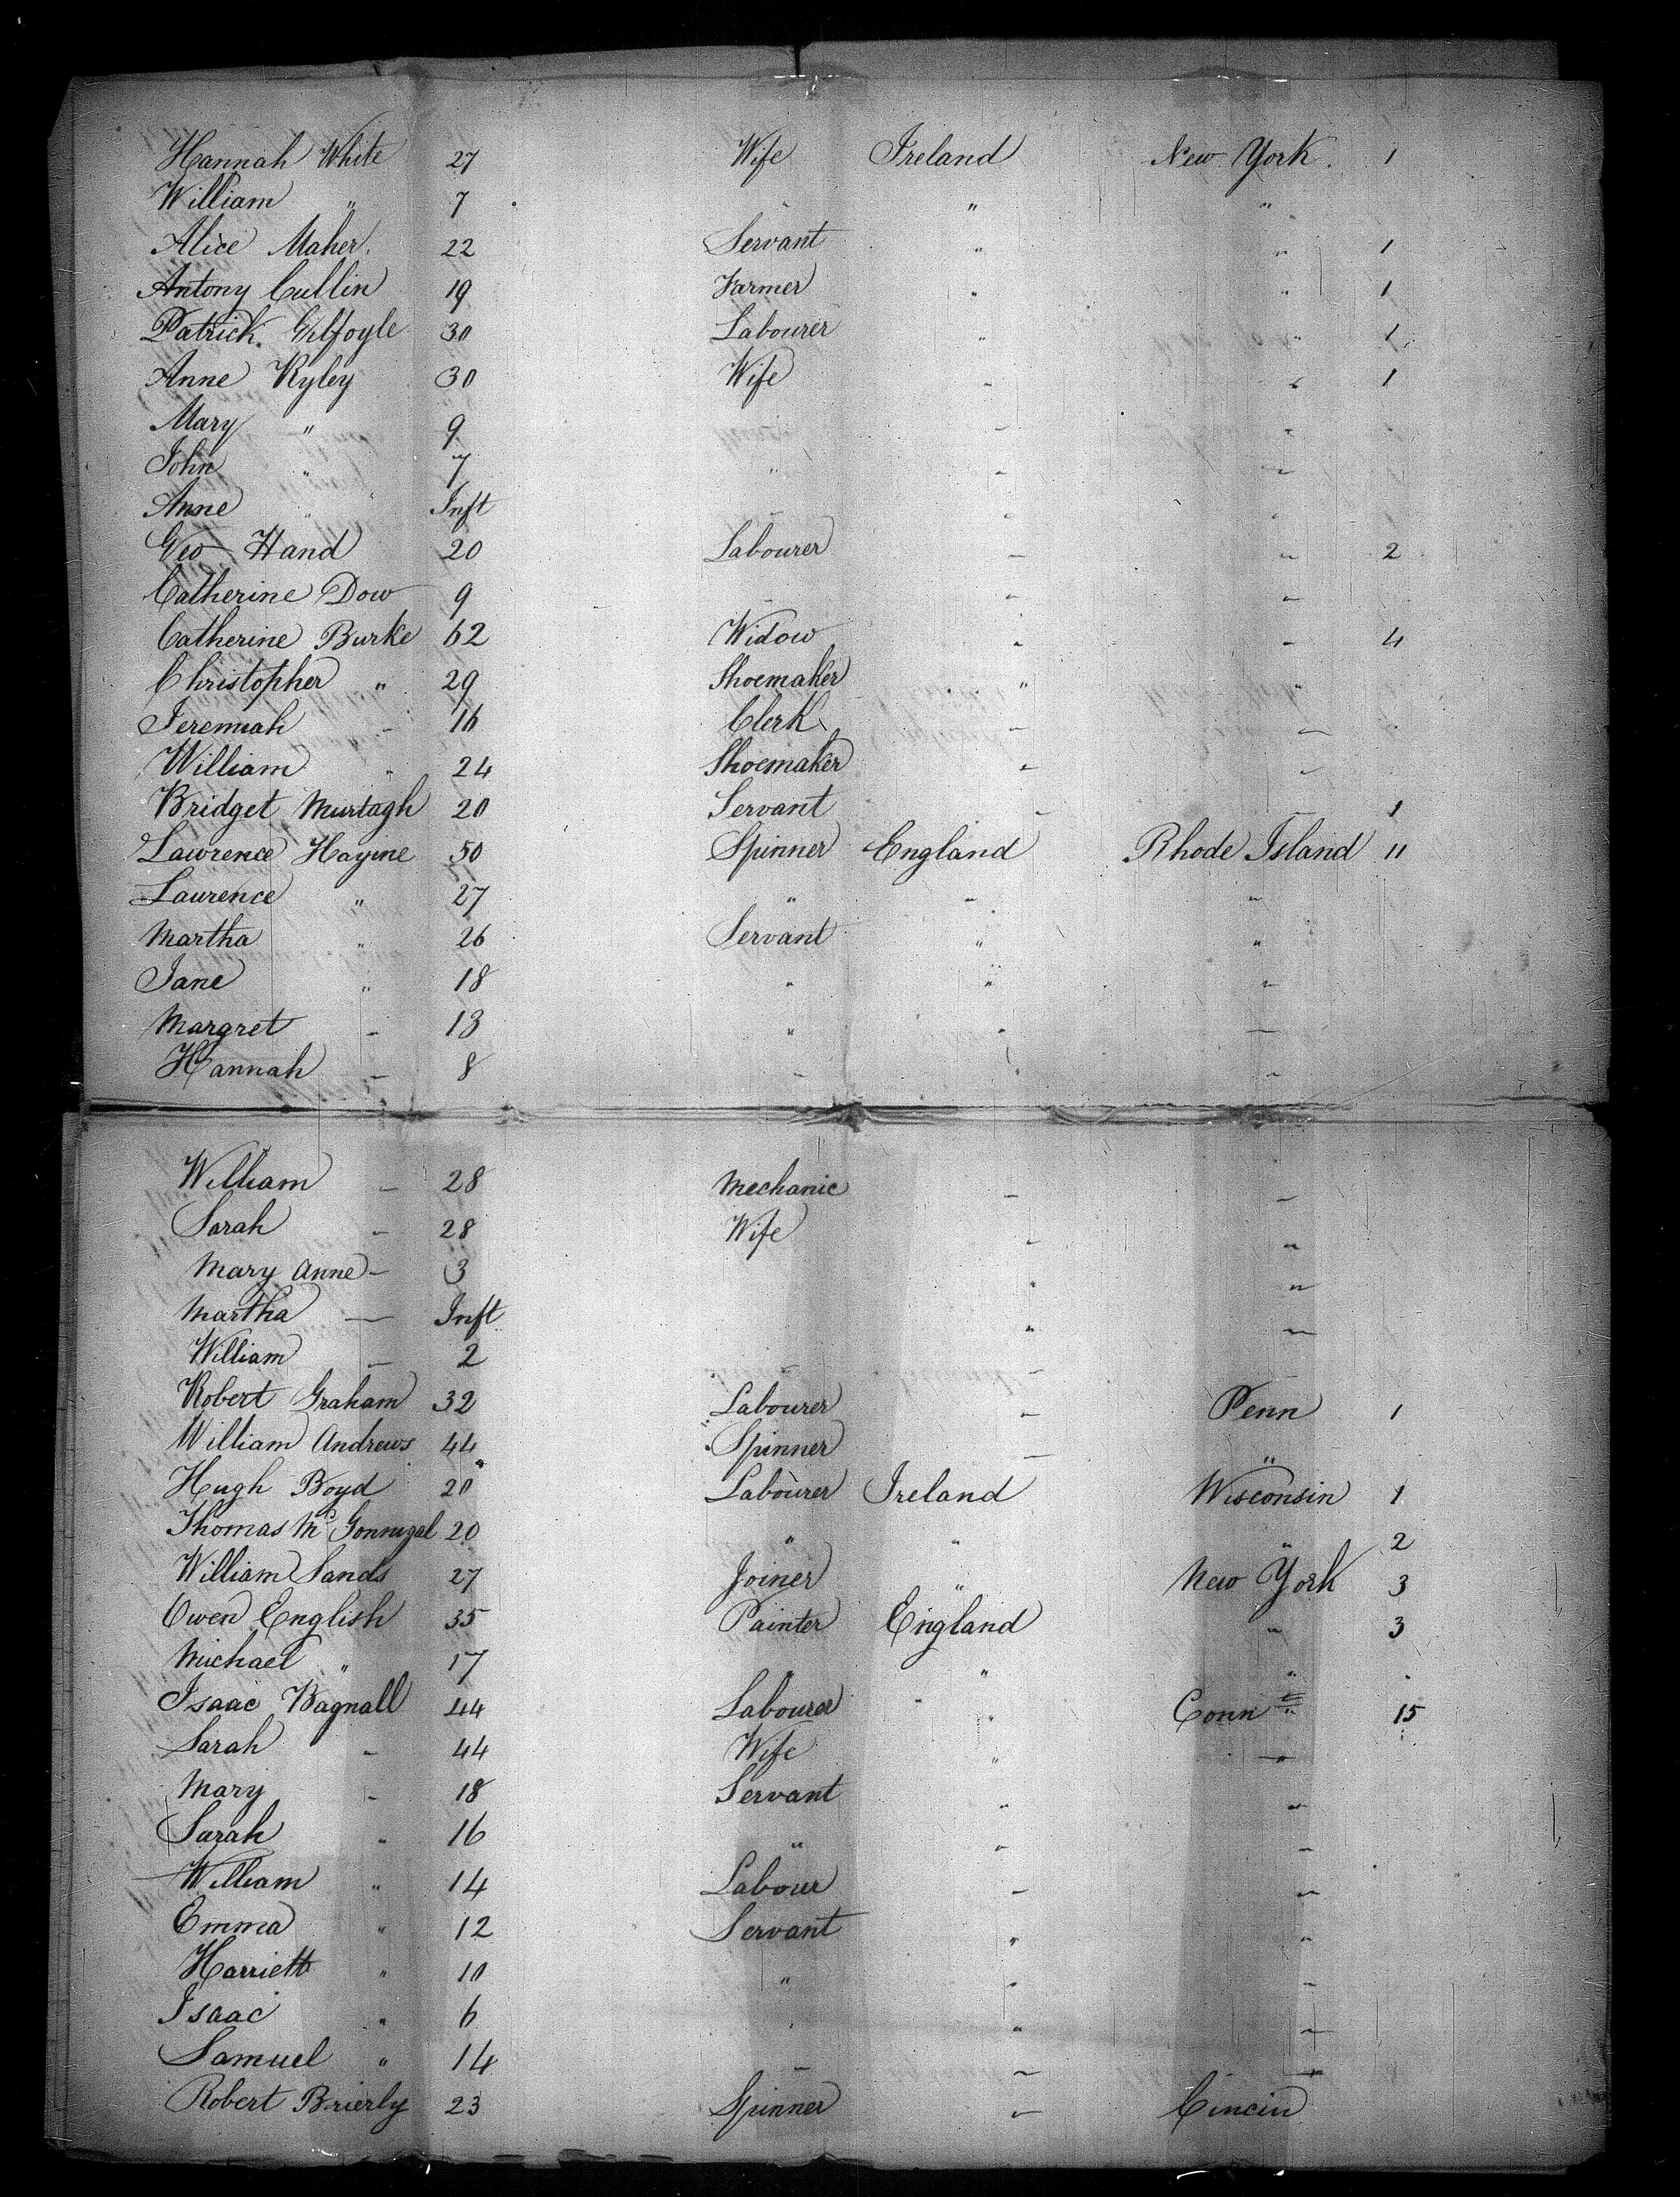 Hannah White 27 Wife Ireland New York 1
William " 7 " "
Alice Maher 22 Servant " " 1
Antony Cullin 19 Farmer " " 1
Patrick Gilfoyle 30 Labourer " " 1
Anne Ryley 30 Wife " " 1
Mary " 9 " "
John " 7 " " "
Anne " Inft " "
Geo Hand 20 Labourer " " 2
Catherine Dow 9 " "
Catherine Burke 62 Widow " " 4
Christopher " 29 Shoemaker " "
Jeremiah " 16 Clerk " "
William " 24 Shoemaker " "
Bridget Murtagh 20 Servant " " 1
Lawrence Hayine 50 Spinner England Rhode Island 11
Laurence " 27 " " "
Martha " 26 Servant " "
Jane " 18 " " "
Margret " 13 " " "
Hannah " 8 " " "
William " 28 Mechanic " "
Sarah " 28 Wife " "
Mary Anne " 3 " "
Martha " Inft " "
William " 2 " "
Robert Graham 32 Labourer " Penn 1
William Andrews 44 Spinner " "
Hugh Boyd 20 Labourer Ireland Wisconsin 1
Thomas Mc Gonnigal 20 " " " 2
William Sands 27 Joiner " New York 3
Owen English 35 Painter England " 3
Michael " 17 " " " "
Isaac Bagnall 44 Labourer " Connt 15
Sarah " 44 Wife " "
Mary " 18 Servant " "
Sarah " 16 " " "
William " 14 Labour " "
Emma " 12 Servant " "
Harriett " 10 " " "
Isaac " 6 " " "
Samuel " 14 " " "
Robert Brierly 23 Spinner " Cincin